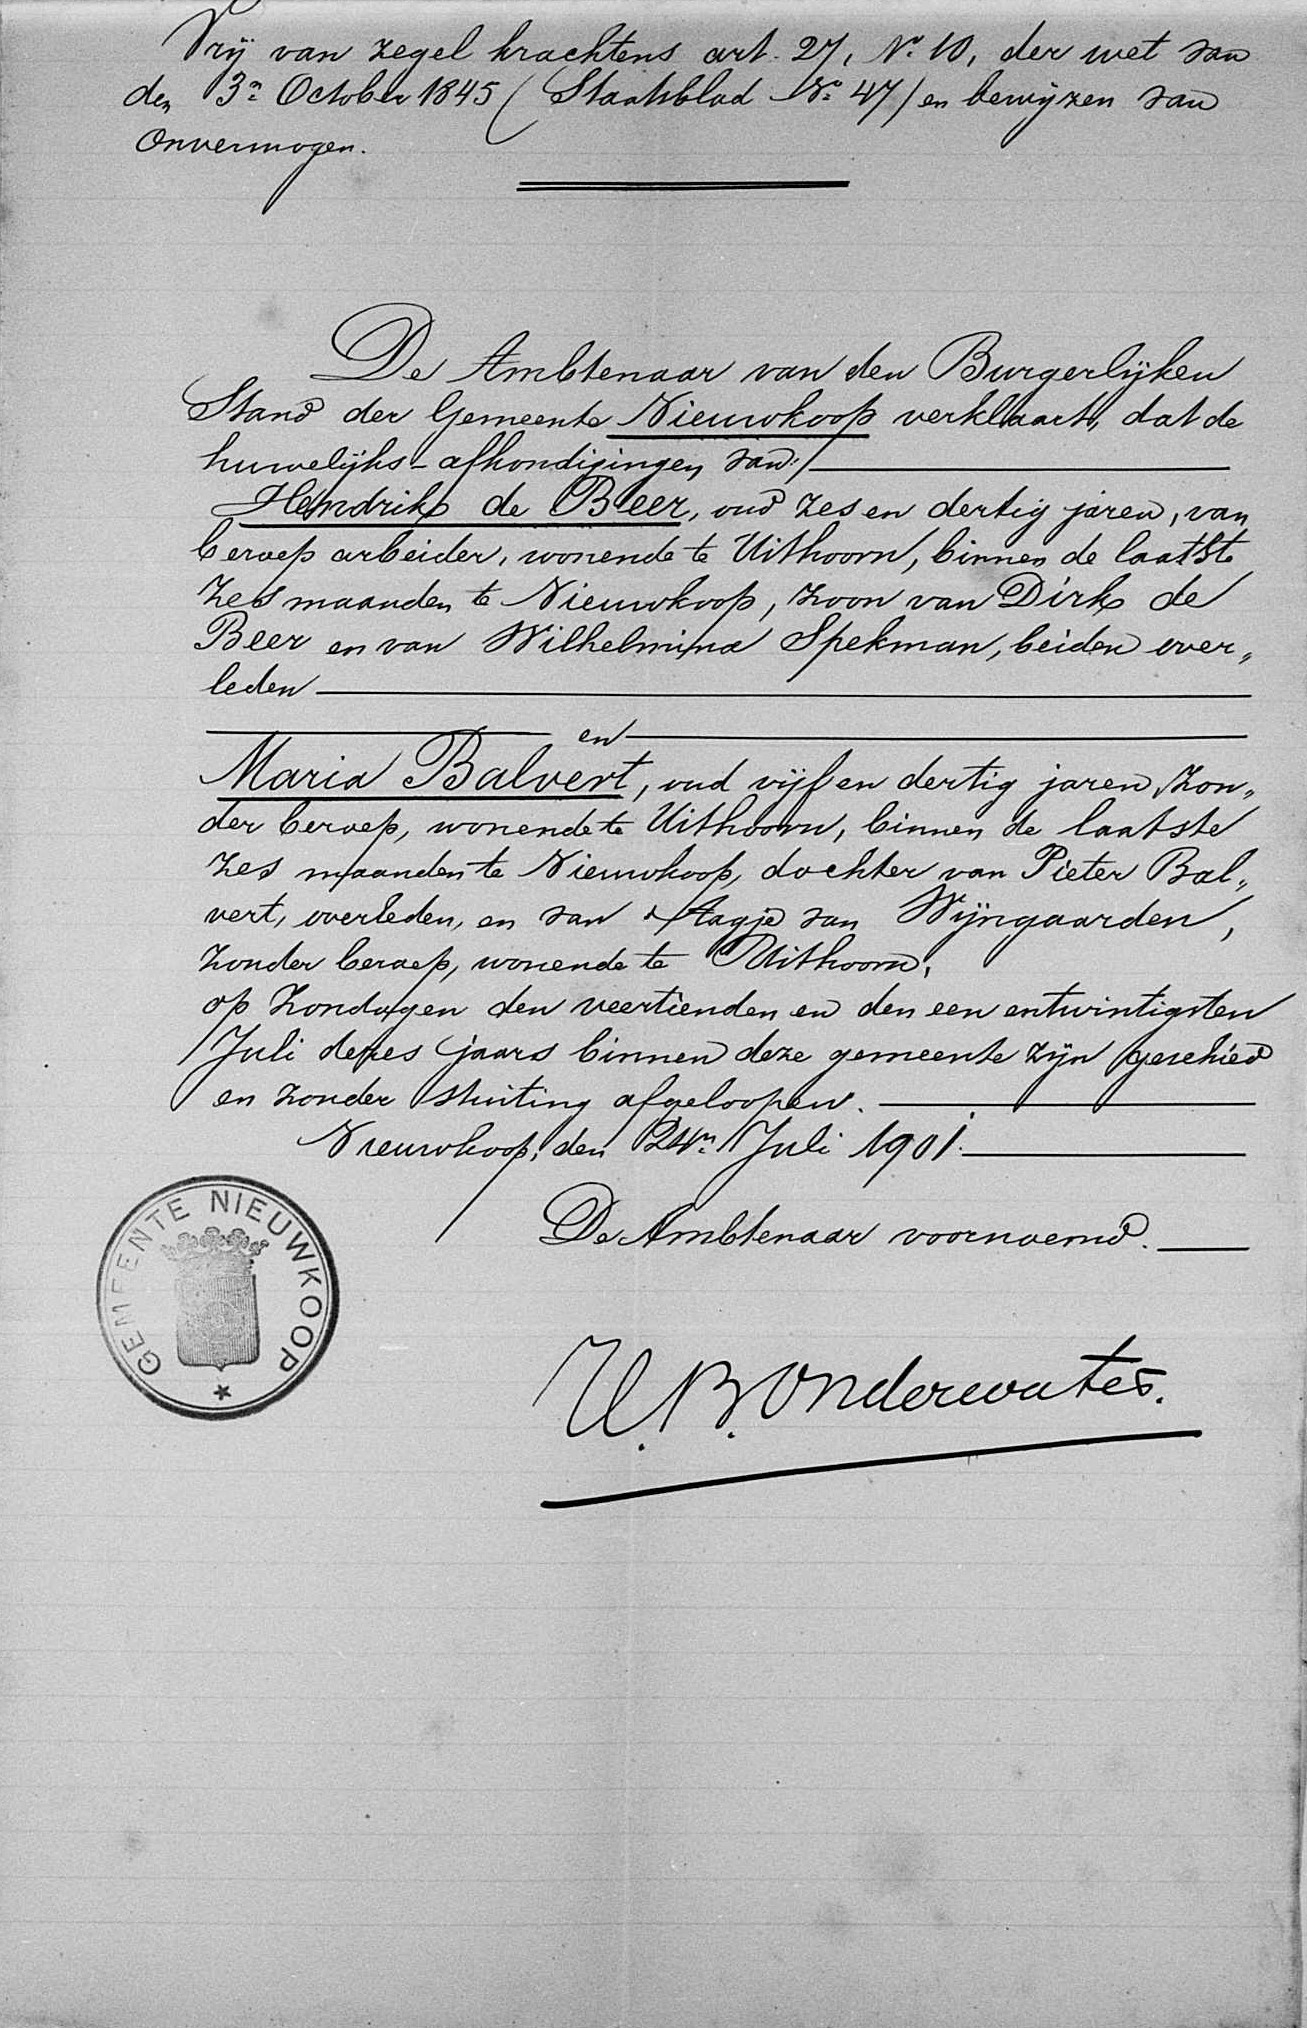 Vrij van zegel krachtens art. 27, No. 10, der wet van
den 3n October 1845 (Staatsblad No. 47) en bewijzen van
onvermogen.
De Ambtenaar van den Burgerlijken
Stand der Gemeente Nieuwkoop verklaart, dat de
huwelijks-afkondigingen van:
Hendrik de Beer, oud zes en dertig jaren, van
beroep arbeider, wonende te Uithoorn, binnen de laatste
zes maanden te Nieuwkoop, zoon van Dirk de
Beer en van Wilhelmina Spekman, beiden over„
leden
en
Maria Balvert, oud vijf en dertig jaren, zon„
der beroep, wonende te Uithoorn, binnen de laatste
zes maanden te Nieuwkoop, dochter van Pieter Bal„
vert, overleden, en van Aagje van Wijngaarden,
zonder beroep, wonende te Uithoorn,
op Zondagen den veertienden en den een entwintigsten
Juli dezes jaars binnen deze gemeente zijn geschied
en zonder stuiting afgeloopen.
Nieuwkoop, den 24n Juli 1901.
De Ambtenaar voornoemd.
GEMEENTE NIEUWKOOP
W. B. Onderwater.